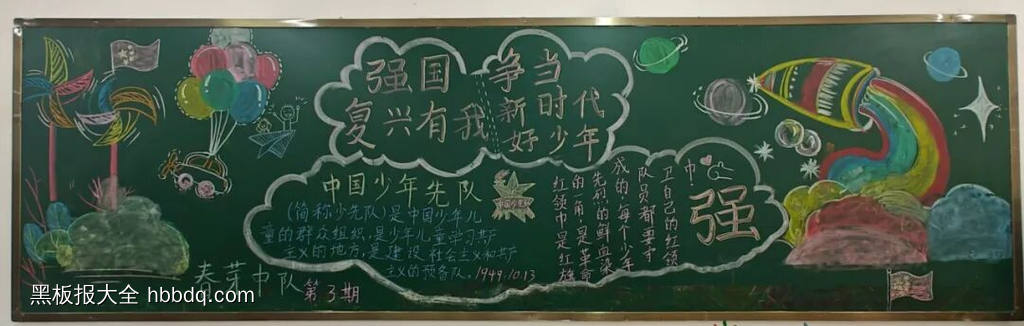 强国 争当
复兴有我 新时代
好少年
中国少年先队
(简称少先队)是中国少年儿
童的群众组织,是少年儿童学习共产
主义的地方,是建设社会主义和共产
主义的预备队。1949.10.13
红领巾是红旗
的一角,是革命
先烈的鲜血染
成的,每个少先
队员都要守
卫自己的红领
巾
强
春芽中队
第3期
黑板报大全 hbbdq.com